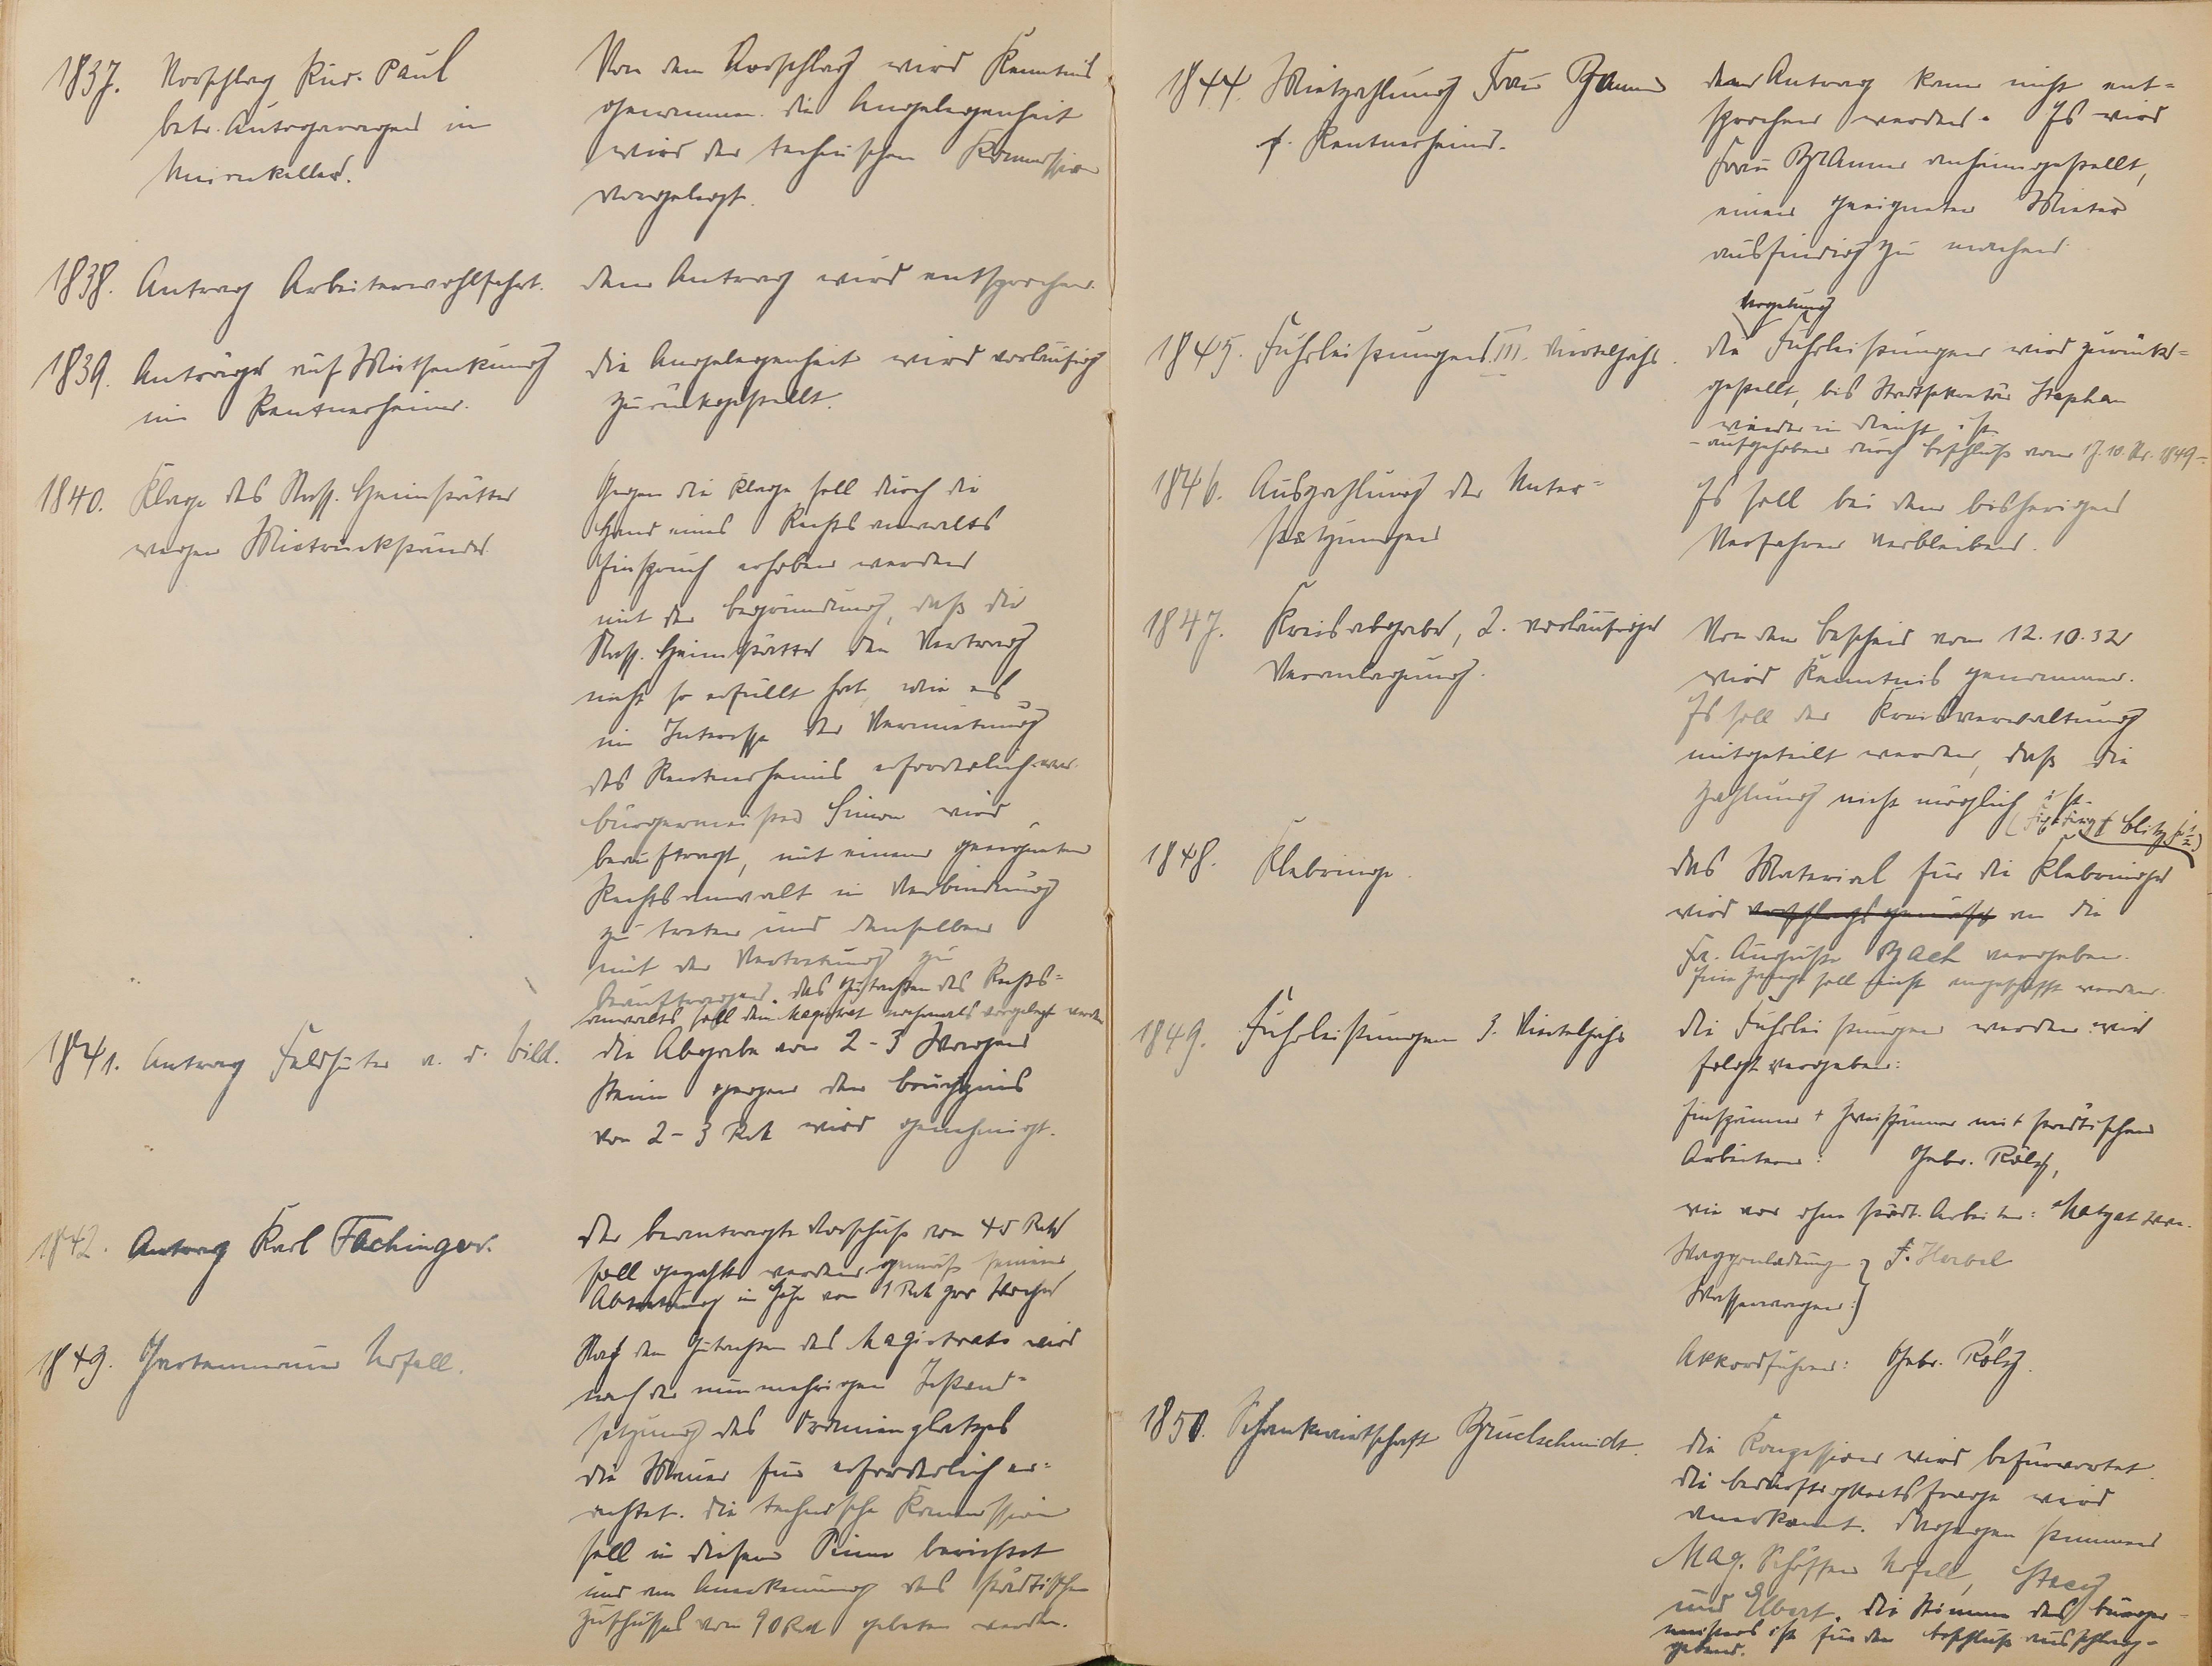 1837. Vorschlag Kur. Paul
betr. Autogaragen im
Marxkeller.
Von dem Vorschlag wird Kenntnis
genommen. Die Angelegenheit
wird der technischen Kommission
vorgelegt.
1838. Antrag Arbeiterwohlfahrt.
Dem Antrag wird entsprochen.
1839. Anträge auf Mietsenkung
im Rentnerheim.
Die Angelegenheit wird vorläufig
zurückgestellt.
1840. Klage des Nass. Heimstätte
wegen Mietrückstände
Gegen die Klage soll durch die
Hand eines Rechtsanwalts
Einspruch erhoben werden
mit der Begründung, daß die
Nass. Heimstätte den Vertrag
nicht so erfüllt hat, wie es
im Interesse der Vermietung
des Rentnerheims erforderlich war.
Bürgermeister Simon wird
beauftragt, mit einem geeigneten
Rechtsanwalt in Verbindung
zu treten und denselben
mit der Vertretung zu
beauftragen. Das Gutachten des Rechts=
anwalts soll dem Magistrat nochmals vorgelegt werden
1841. Antrag Feldhüter v. d. Bild.
Die Abgabe von 2-3 Wagen
Stein gegen den
von 2-3 RM wird genehmigt.
1842. Antrag Karl Fachinger.
Der beantragte Vorschuß von 40 RM
soll gezahlt werden gemäß seiner
Abtretung in Höhe von 1 RM pro Woche
1843. Gartenmauer Urfell.
Nach dem Gutachten des Magistrats wird
nach der nunmehrigen Instand=
setzung des Oranienplatzes
die Mauer für erforderlich er=
achtet. Die technische Kommission
soll in diesem Sinne berichtet
und um Anerkennung des städtischen
Zuschusses von 90 RM gebeten werden.
1844. Mietzahlung Frau Braun
f. Rentnerheim.
Dem Antrag kann nicht ent=
sprochen werden. Es wird
Frau Braun anheimgestellt,
einen geeigneten Mieter
ausfindig zu machen.
1845. Fuhrleistungen III. Vierteljahr.
Vergebung
Die Fuhrleistungen wird zurück=
gestellt, bis Stadtsekretär Stephan
wieder im Dienst ist.
- aufgehoben durch Beschluß vom 17.10. Nr. 1849 -
1846. Auszahlung der Unter=
stützungen
Es soll bei dem bisherigen
Verfahren verbleiben.
1847. Kreisabgabe, 2. vorläufige
Veranlagung.
Von dem Bescheid vom 12.10.32
wird Kenntnis genommen.
Es soll der Kreisverwaltung
mitgeteilt werden, daß die
Zahlung nicht möglich ist.
1848. Klebringe.
Das Material für die Klebringe
wird vorschlagsgemäß an die
Fa. Auguste Bach vergeben.
Eine soll nicht angeschafft werden.
1849. Fuhrleistungen 3. Vierteljahr
Die Fuhrleistungen werden wie
folgt vergeben:
Einspänner + Zweispänner mit städtischen
Arbeitern: Gebr. Rölz,
wie vor ohne städt. Arbeiter:
Waggonladungen } F. Horbel
Wasserwagen: }
Akkordfuhren: Gebr. Rölz.
1850. Schankwirtschaft Bruchschmidt.
Die Konzession wird befürwortet.
Die Bedürftigkeitsfrage wird
anerkannt. Dagegen stimmen
Mag. Schöffen Urfell, Stacy
und Elbert. Die Stimme des Bürger-
meisters ist für den Beschluß ausschlag-
gebend.